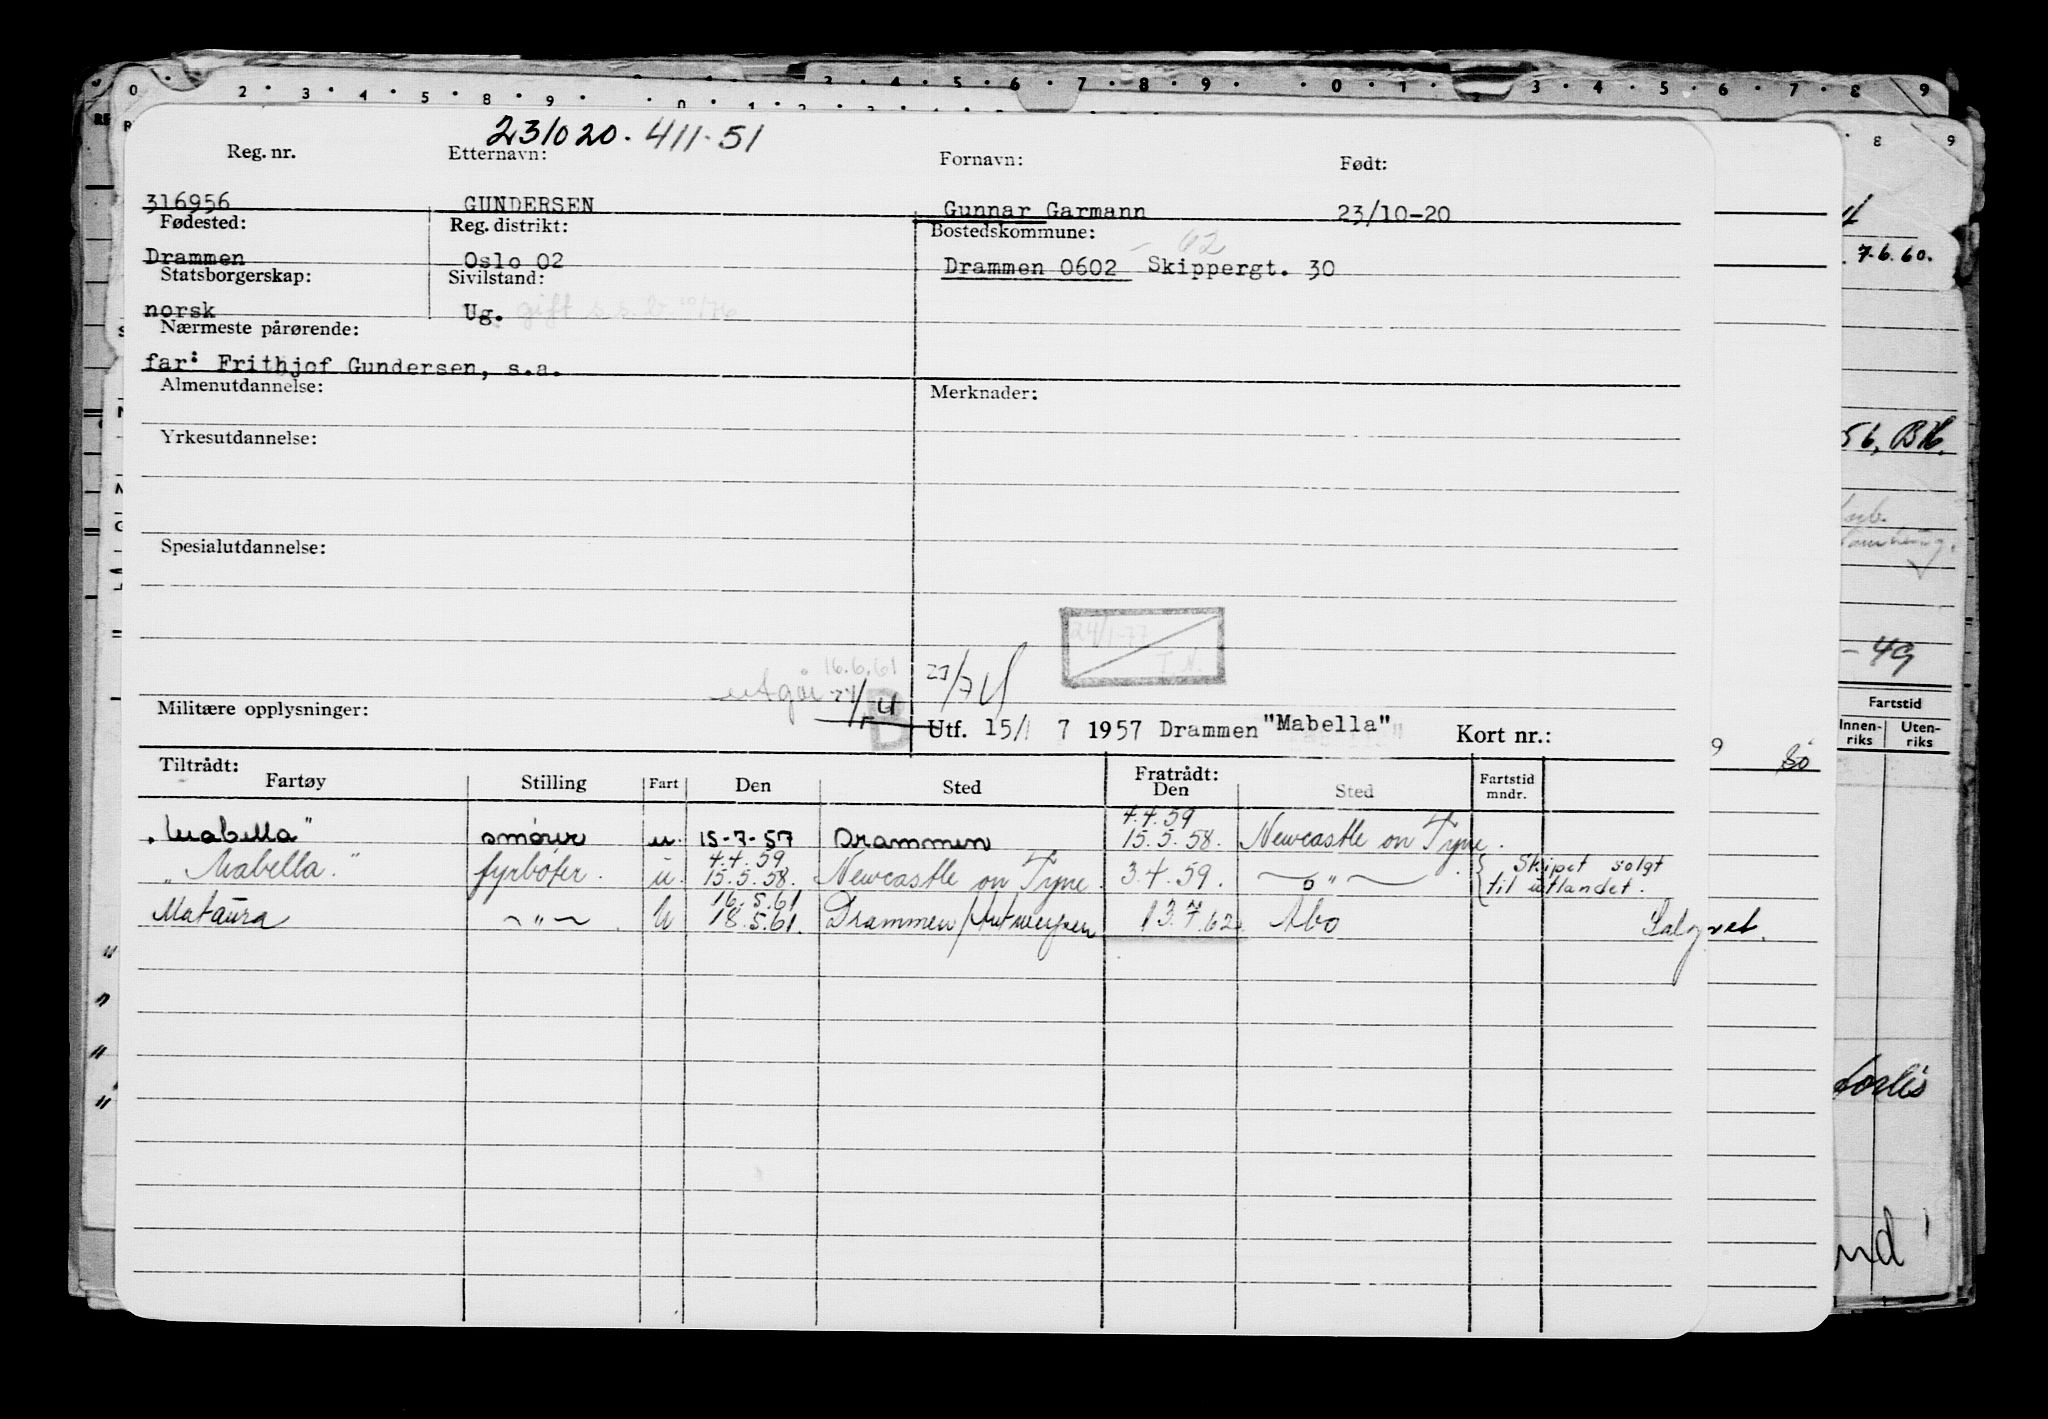 231020. 411-51
Reg. nr. Etternavn: Fornavn: Født:
316956 GUNDERSEN Gunnar Garmann 23/10-20
Fødested: Reg. distrikt: Bostedskommune:
- 62
Drammen Oslo 02 Drammen 0602 Skippergt. 30
Statsborgerskap: Sivilstand:
norsk Ug. gift s.s.b. 10/76
Nærmeste pårørende:
far: Frithjof Gundersen, s.a.
Almenutdannelse: Merknader:
Yrkesutdannelse:
Spesialutdannelse:
24/1-77
T.H.
16.6.61
utgår
Militære opplysninger: Utf. 15/ 7 1957 Drammen "Mabella" Kort nr.:
Tiltrådt: Fratrådt:
Fartøy Stilling Fart Den Sted Den Sted Fartstid mndr.
4.4.59
"Mabella" smører u. 15-7-57 Drammen 15.5.58. Newcastle on Tyne.
4.4.59
"Mabella." fyrbøter. u. 15.5.58. Newcastle on Tyne. 3.4.59. — o " — Skipet solgt
til utlandet.
16.5.61
Mataura ~ " ~ U 18.5.61. Drammen/Antwerpen 13.7.62 Åbo
7.6.60.
56, BH.
- 49
Fartstid
Innen-
riks
Uten-
riks